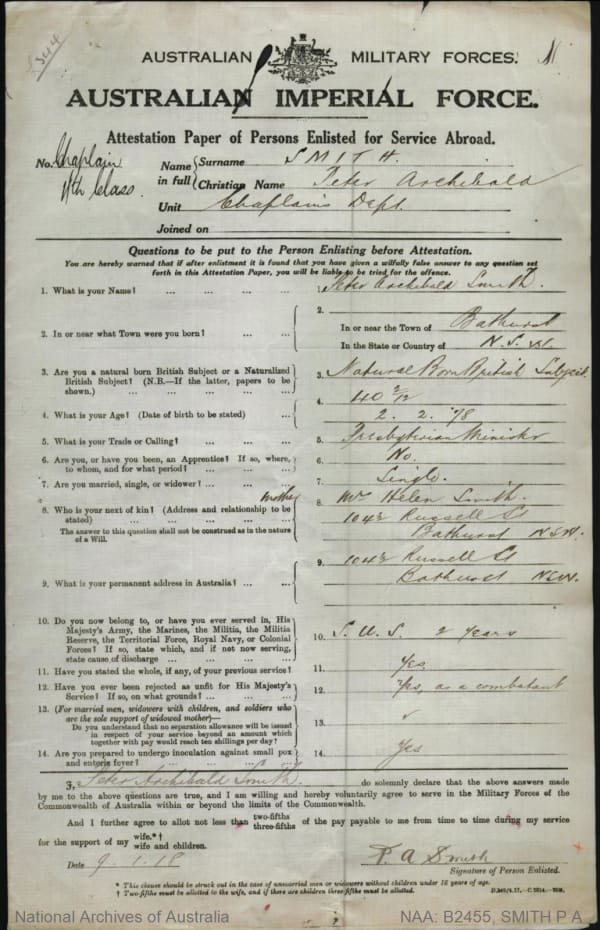 344
AUSTRALIAN MILITARY FORCES.
AUSTRALIAN IMPERIAL FORCE.
Attestation Paper of Persons Enlisted for Service Abroad.
No. Chaplain 4th Class
Name in full { Surname SMITH.
Christian Name Peter Archibald
Unit Chaplains Dept.
Joined on
Questions to be put to the Person Enlisting before Attestation.
You are hereby warned that if after enlistment it is found that you have given a wilfully false answer to any question set
forth in this Attestation Paper, you will be liable to be tried for the offence.
1. What is your Name? ... ... ... ... Peter Archibald Smith.
2. In or near what Town were you born? ... ... 2. In or near the Town of Bathurst
In the State or Country of N.S.W.
3. Are you a natural born British Subject or a Naturalized
British Subject? (N.B.—If the latter, papers to be
shown.) ... ... ... ... 3. Natural Born British Subject.
4. What is your Age? (Date of birth to be stated) ... 4. 40 2/12
2. 2. '78
5. What is your Trade or Calling? ... ... ... 5. Presbyterian Minister
6. Are you, or have you been, an Apprentice? If so, where,
to whom, and for what period? ... ... ... 6. No.
7. Are you married, single, or widower? ... ... ... 7. Single.
mother
8. Who is your next of kin? (Address and relationship to be
stated) ... ... ... ... 8. Mrs Helen Smith.
The answer to this question shall not be construed as in the nature
of a Will.
104½ Russell St
Bathurst NSW.
9. What is your permanent address in Australia? ... ... 9. 104½ Russell St
Bathurst NSW.
10. Do you now belong to, or have you ever served in, His
Majesty's Army, the Marines, the Militia, the Militia
Reserve, the Territorial Force, Royal Navy, or Colonial
Forces? If so, state which, and if not now serving,
state cause of discharge ... ... ... 10. S.U.S. 2 years
11. Have you stated the whole, if any, of your previous service? 11. Yes
12. Have you ever been rejected as unfit for His Majesty's
Service? If so, on what grounds? ... ... ... 12. Yes, as a combatant
13. (For married men, widowers with children, and soldiers who
are the sole support of widowed mother)—
Do you understand that no separation allowance will be issued
in respect of your service beyond an amount which
together with pay would reach ten shillings per day? ... 13. ✓
14. Are you prepared to undergo inoculation against small pox
and enteric fever? ... ... ... 14. Yes
I, Peter Archibald Smith. do solemnly declare that the above answers made
by me to the above questions are true, and I am willing and hereby voluntarily agree to serve in the Military Forces of the
Commonwealth of Australia within or beyond the limits of the Commonwealth.
And I further agree to allot not less than two-fifths three-fifths of the pay payable to me from time to time during my service
for the support of my wife.*† wife and children.
Date 9.1.18
P. A Smith
Signature of Person Enlisted.
* This clause should be struck out in the case of unmarried men or widowers without children under 18 years of age.
† Two-fifths must be allotted to the wife, and if there are children three-fifths must be allotted.
National Archives of Australia
NAA: B2455, SMITH P A